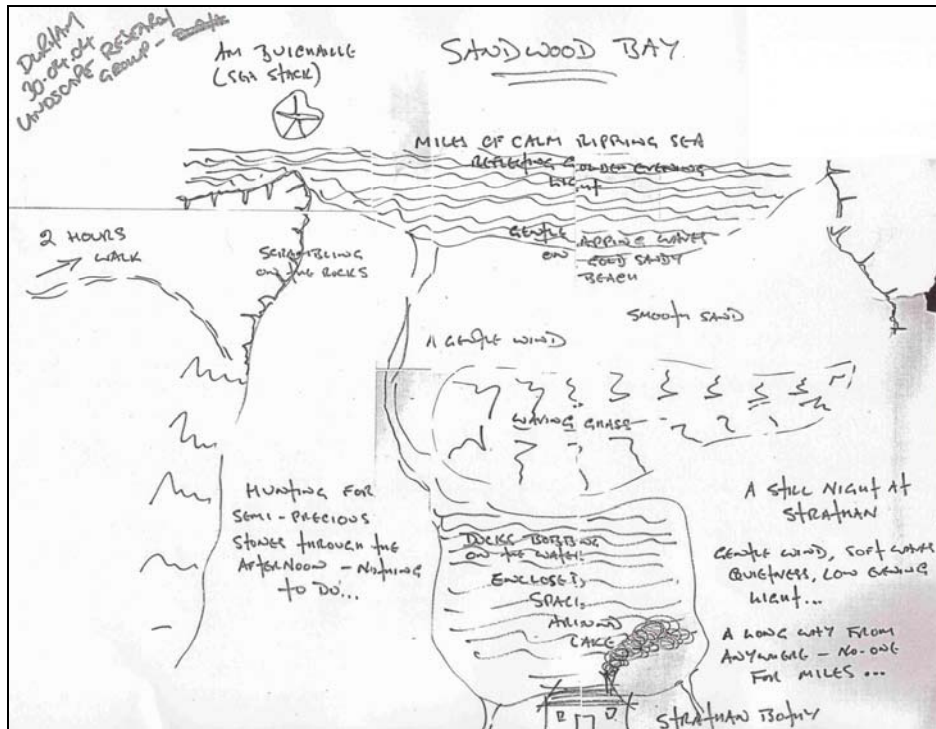 DURHAM
30.04.04
LANDSCAPE RESEARCH
GROUP -
AM BUICHAILLE
(SEA STACK)
SANDWOOD BAY
MILES OF CALM RIPPLING SEA
REFLECTING GOLDEN EVENING
LIGHT
2 HOURS
WALK
SCRAMBLING
ON THE ROCKS
GENTLE LAPPING WAVES
ON GOLD SANDY
BEACH
SMOOTH SAND
A GENTLE WIND
WAVING GRASS
HUNTING FOR
SEMI-PRECIOUS
STONES THROUGH THE
AFTERNOON - NOTHING
TO DO...
DUCKS BOBBING
ON THE WATER
ENCLOSED
SPACE
AROUND
LAKE
A STILL NIGHT AT
STRATHAN
GENTLE WIND, SOFT WAVES
QUIETNESS, LOW EVENING
LIGHT...
A LONG WAY FROM
ANYWHERE - NO-ONE
FOR MILES ...
STRATHAN BOTHY